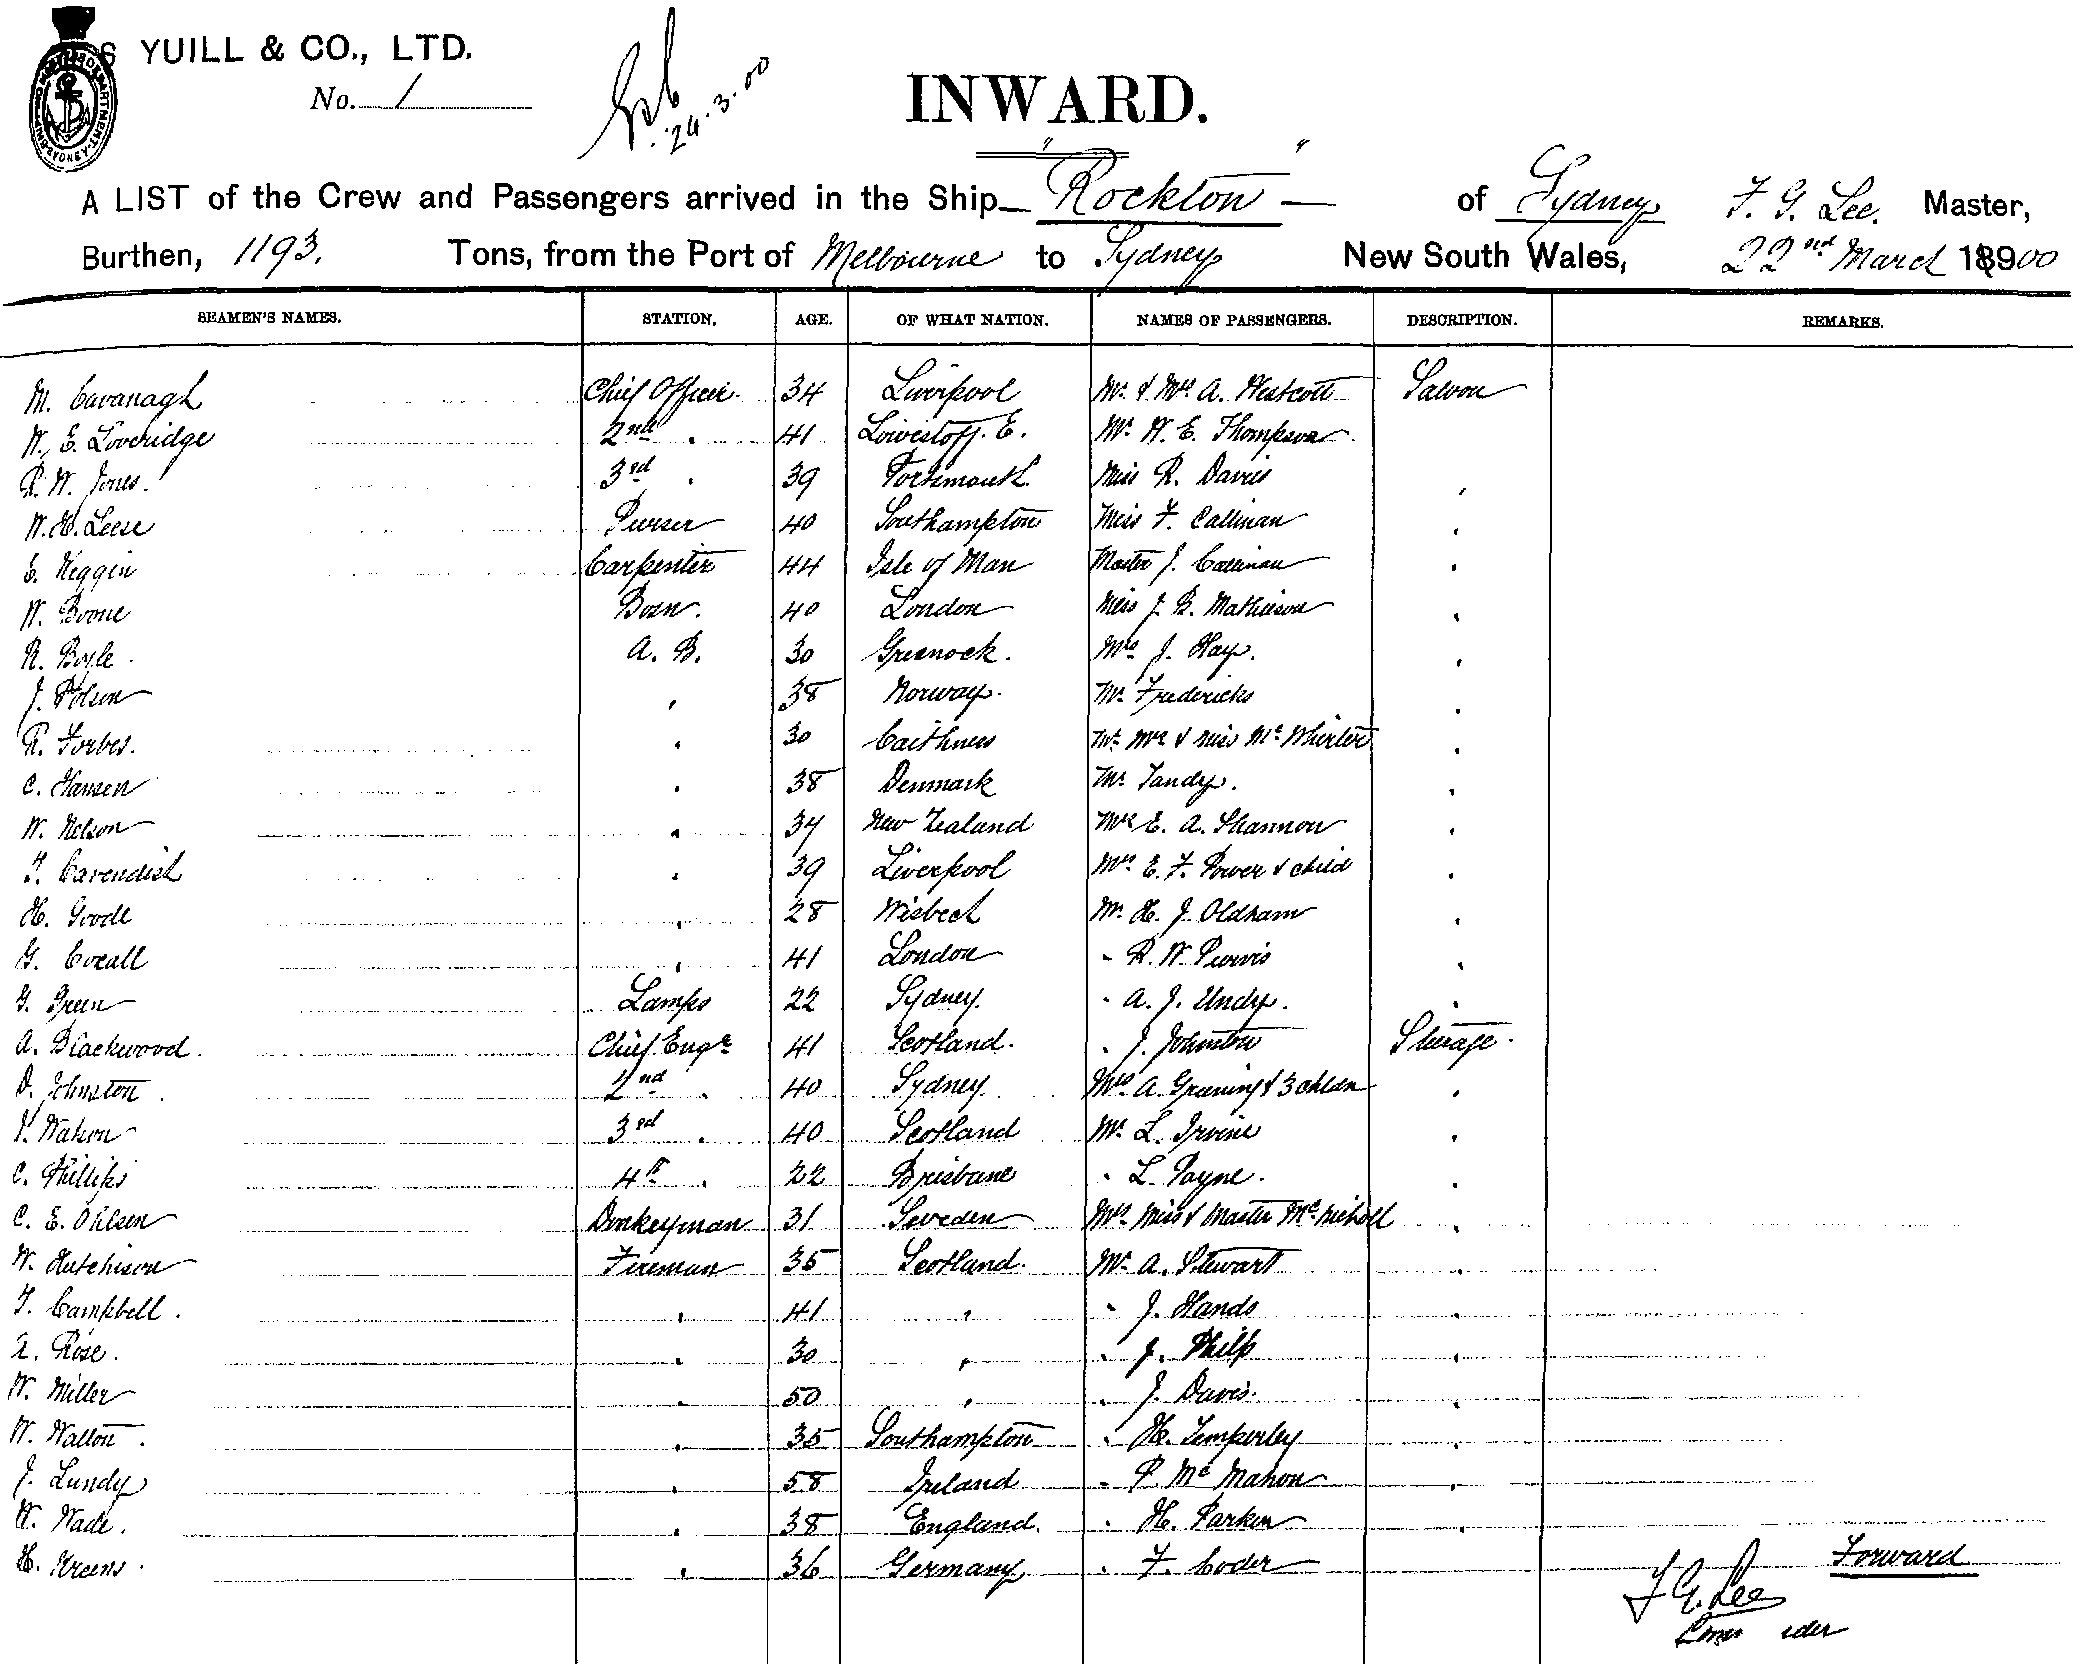 S YUILL & CO., LTD.
No. 1
24.3.00
INWARD.
A LIST of the Crew and Passengers arrived in the Ship "Rockton" of Sydney F. G. Lee. Master,
Burthen, 1193. Tons, from the Port of Melbourne to Sydney New South Wales, 22nd March 1900
SEAMEN'S NAMES. STATION. AGE. OF WHAT NATION. NAMES OF PASSENGERS. DESCRIPTION. REMARKS.
M. Cavanagh Chief Officer. 34 Liverpool Mr. & Mrs. A. Westcott Saloon
W. E. Loveridge 2nd . 41 Lowestoff. E. Mr. W. E. Thompson
R. W. Jones. 3rd . 39 Portsmouth Miss R. Davies ,
W. H. Leese Purser 40 Southampton Miss F. Callinan .
E. Keggin Carpenter 44 Isle of Man Master J. Callinan .
W. Boone Bosn. 40 London Miss J. B. Mathieson .
R. Boyle. A. B. 30 Greenock. Mrs J. Hay. ,
J. Polsen , 38 Norway. Mr. Fredericks .
R. Forbes. . 30 Caithness Mr. Mrs & Miss McWhirter .
C. Hansen . 38 Denmark Mr. Tandy. .
W. Nelson . 37 New Zealand Mrs E. A. Shannon .
T. Cavendish . 39 Liverpool Mrs E. F. Power & child .
H. Goode . 28 Wisbech Mr. H. J. Oldham .
G. Coxall , 41 London " R. W. Purvis .
G. Green Lamps 22 Sydney. " A. J. Undy. .
A. Blackwood. Chief Engr 41 Scotland. " J. Johnston Steerage.
D. Johnston. 2nd . 40 Sydney. Mrs A. & 3 chldn .
Watson 3rd . 40 Scotland Mr. L. Irvine .
C. Phillips 4th . 22 Brisbane " L. Payne. .
C. E. Ohlsen Donkeyman 31 Sweden Mrs. Miss & Master McNicholl .
W. Hutchison Fireman 35 Scotland. Mr. A. Stewart .
T. Campbell. , 41 , " J. Hands .
A. Rose. . 30 , " J. Philp .
W. Miller . 50 , " J. Davis. .
W. Walton. . 35 Southampton " H. Temperley .
J. Lundy . 58 Ireland " P. McMahon .
W. Wade. . 38 England. " H. Parker .
H. Kreens. . 36 Germany " F. Coder
Forward
F G. Lee